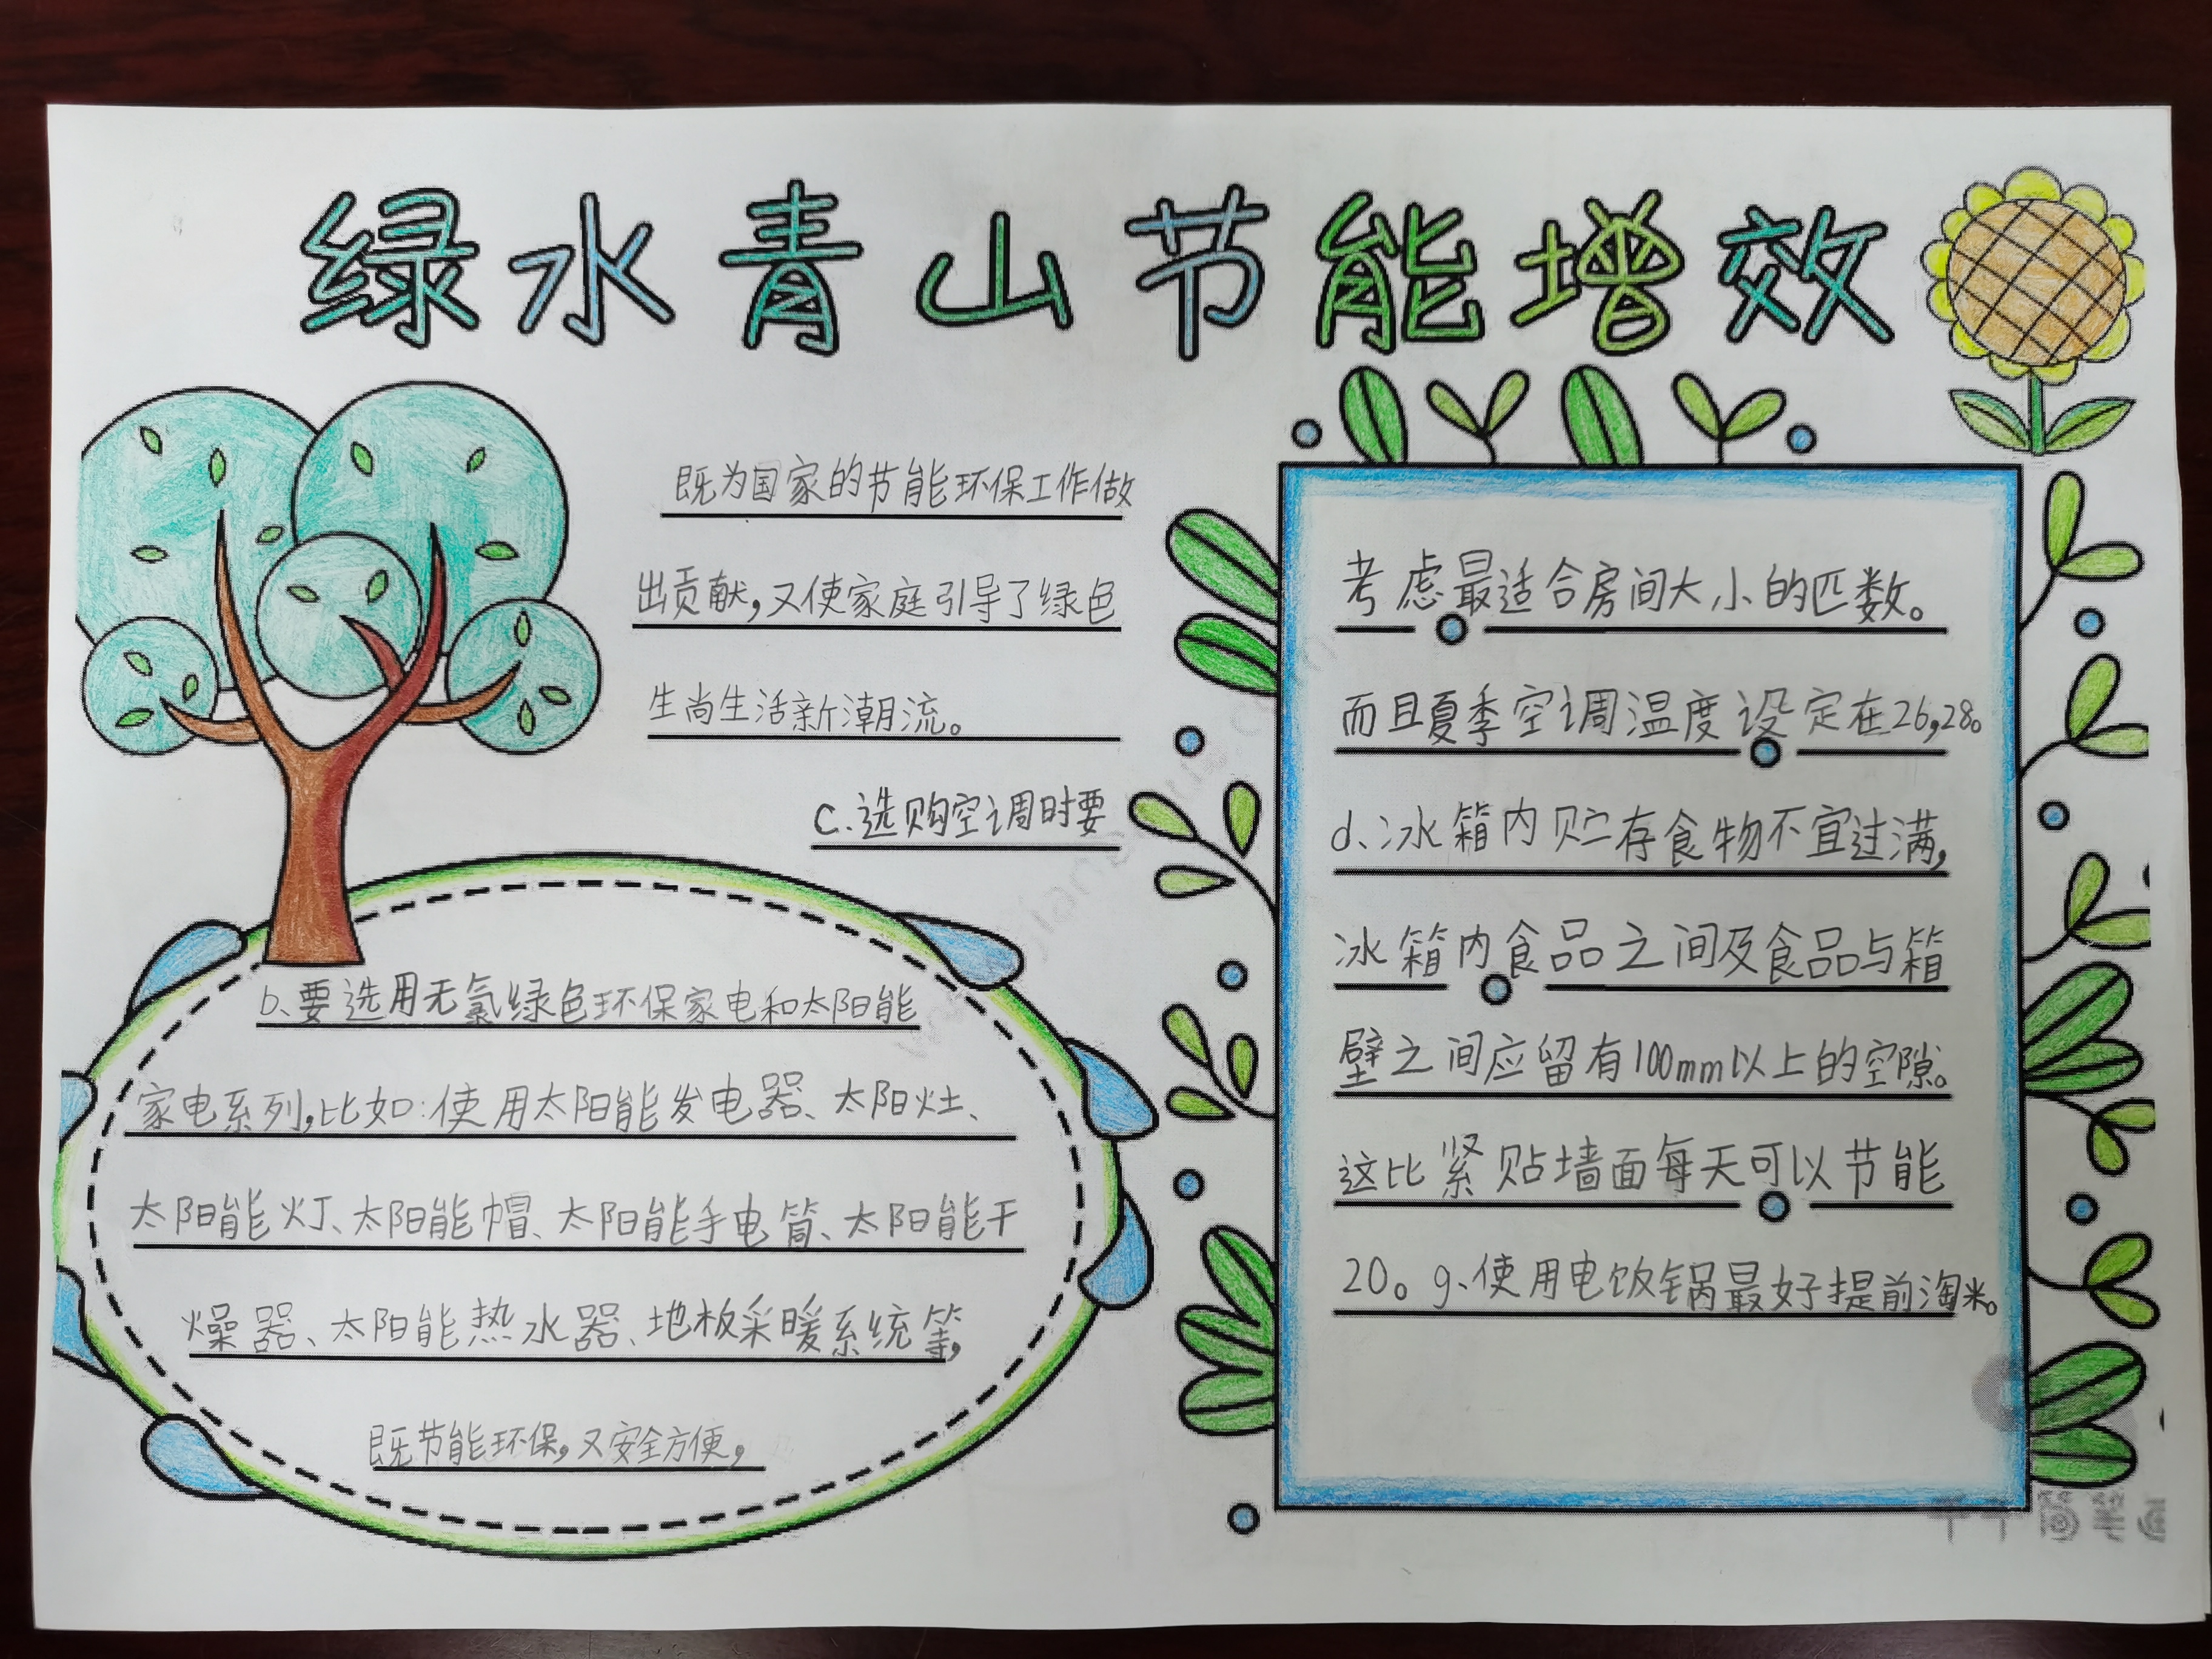 绿水青山节能增效
b、要选用无氯绿色环保家电和太阳能
家电系列,比如:使用太阳能发电器、太阳灶、
太阳能灯、太阳能帽、太阳能手电筒、太阳能干
燥器、太阳能热水器、地板采暖系统等,
既节能环保,又安全方便,
既为国家的节能环保工作做
出贡献,又使家庭引导了绿色
生尚生活新潮流。
c.选购空调时要
考虑最适合房间大小的匹数。
而且夏季空调温度设定在26,28。
d、冰箱内贮存食物不宜过满,
冰箱内食品之间及食品与箱
壁之间应留有100mm以上的空隙。
这比紧贴墙面每天可以节能
20。g、使用电饭锅最好提前淘米。